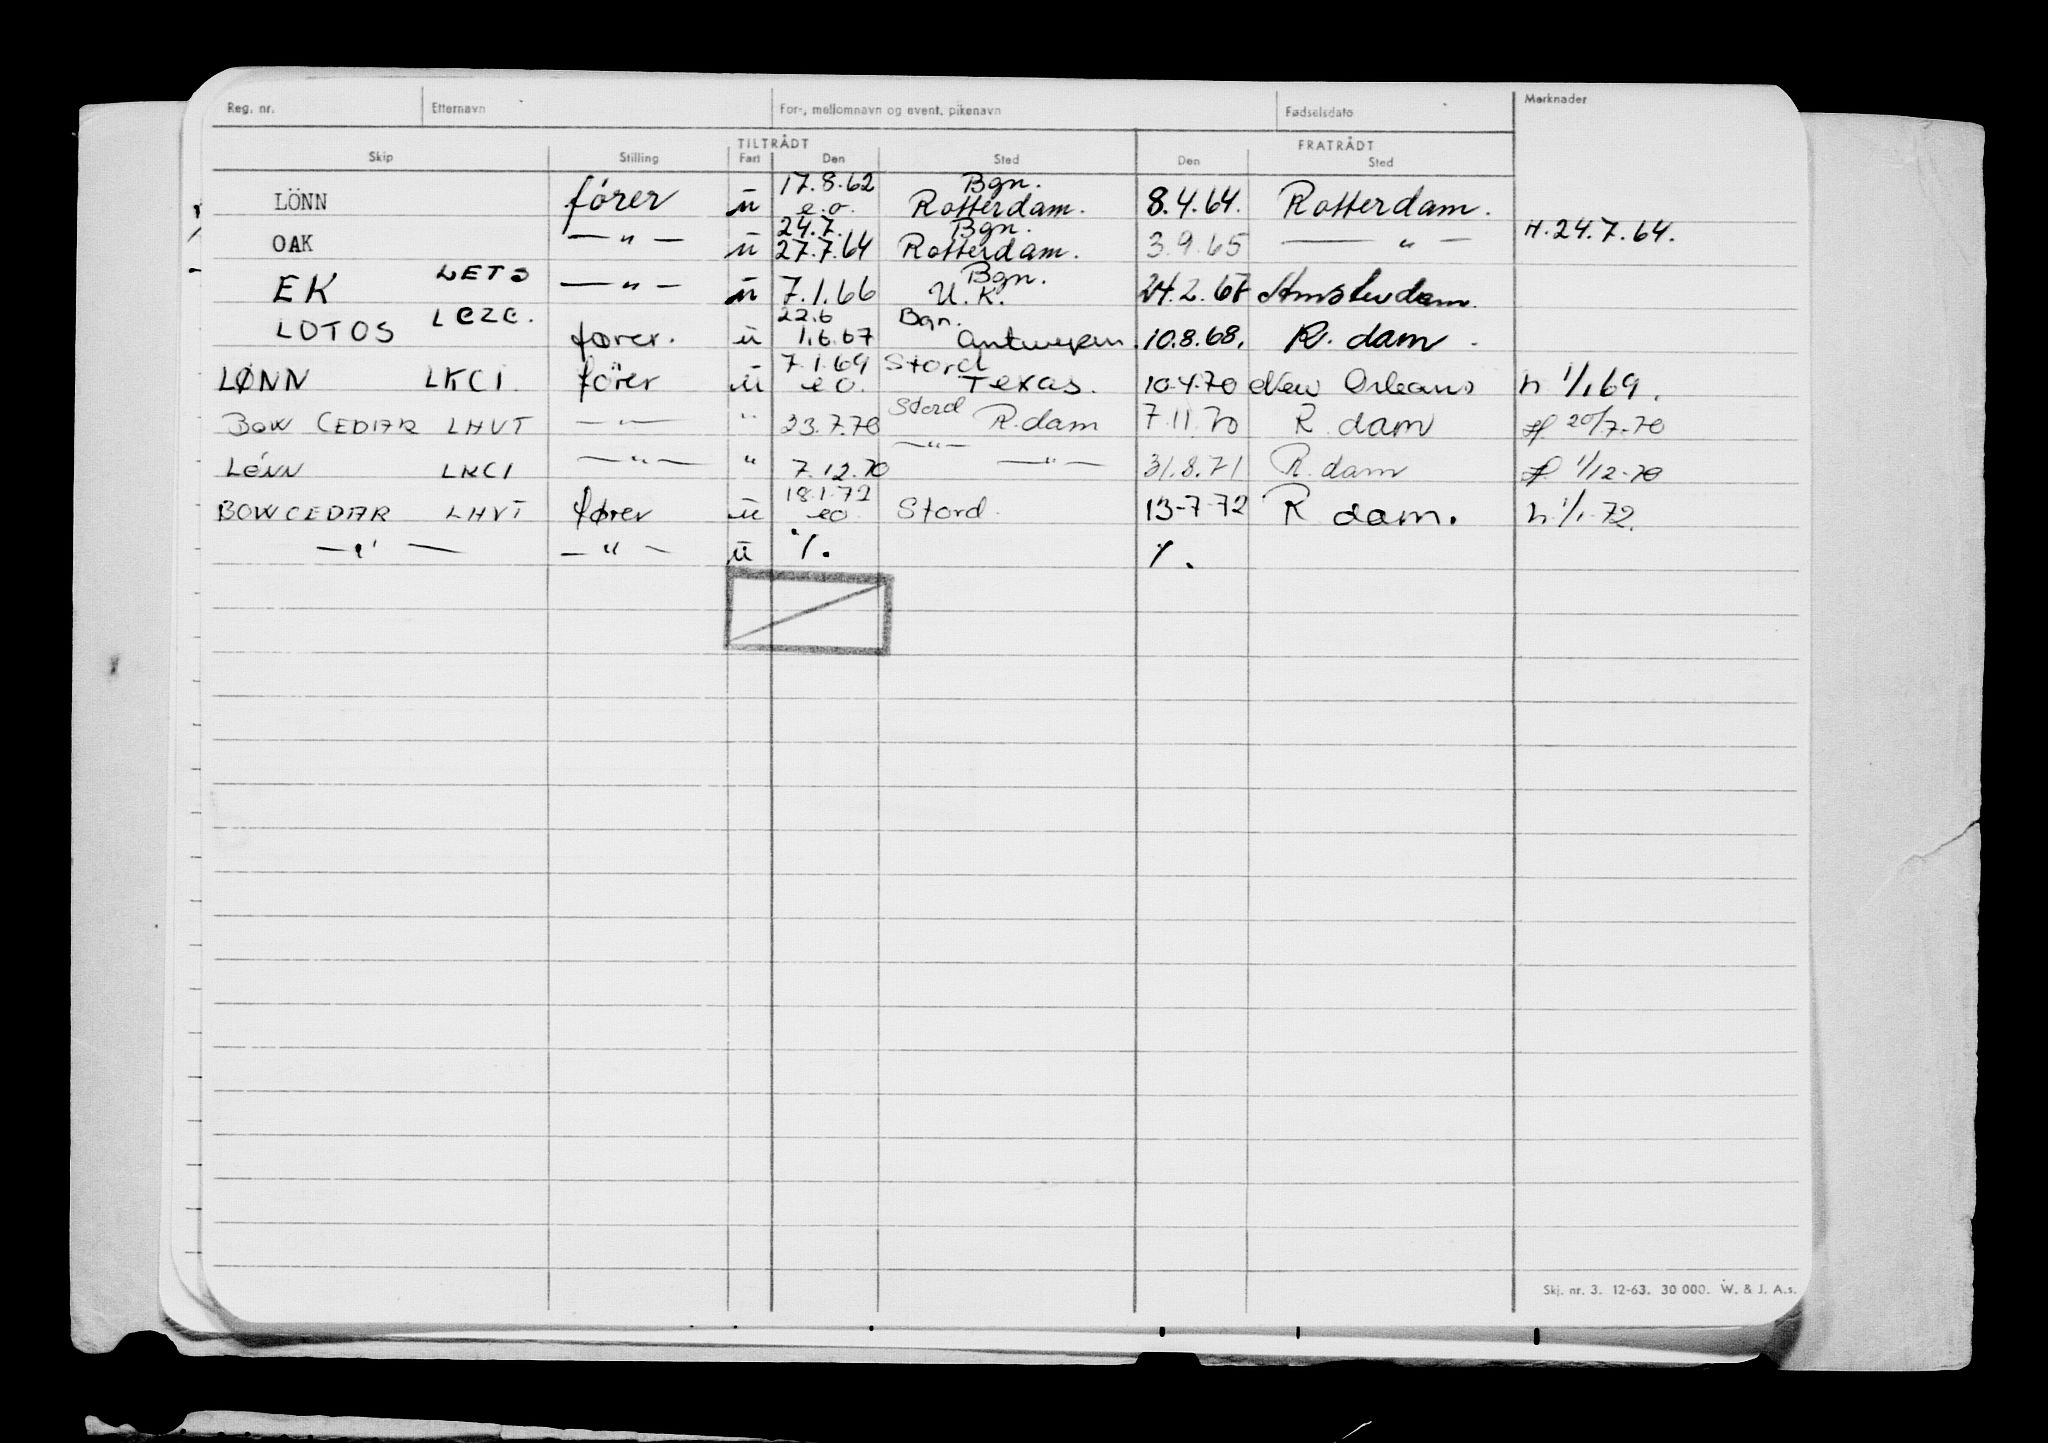 Reg. nr. Etternavn For-, mellomnavn og event. pikenavn Fødselsdato Merknader
TILTRÅDT FRATRÅDT
Skip Stilling Fart Den Sted Den Sted
17.8.62 Bgn.
LÖNN fórer ū e.o. Rotterdam. 8.4.64. Rotterdam.
24.7. Bgn. H.24.7.64.
OAK —"— ū 27.7.64 Rotterdam. 3.9.65 —"—
LETS Bgn.
EK —"— ū 7.1.66 U.K. 24.2.67 Amsterdam.
LEZE. 22.6 Bgn.
LOTOS fører. ū 1.6.67 Antwerpen. 10.8.68. R. dam.
7.1.69 Stord
LØNN LKCI förer ū eo. Texas. 10.4.70 New Orleans h 1/1.69.
Stord
BOW CEDAR LHVT —"— " 23.7.70 R.dam 7.11.70 R. dam H 20/7-70
—"—
LÓNN LKCI —"— " 7.12.70 —"— 31.8.71 R.dam H 1/12-70
18.1.72
BOWCEDAR LHVT fører ū eo Stord. 13-7-72 R dam. h 1/1-72.
—"— —"— ū %. %.
Skj. nr. 3. 12-63. 30 000. W. & J. A.s.